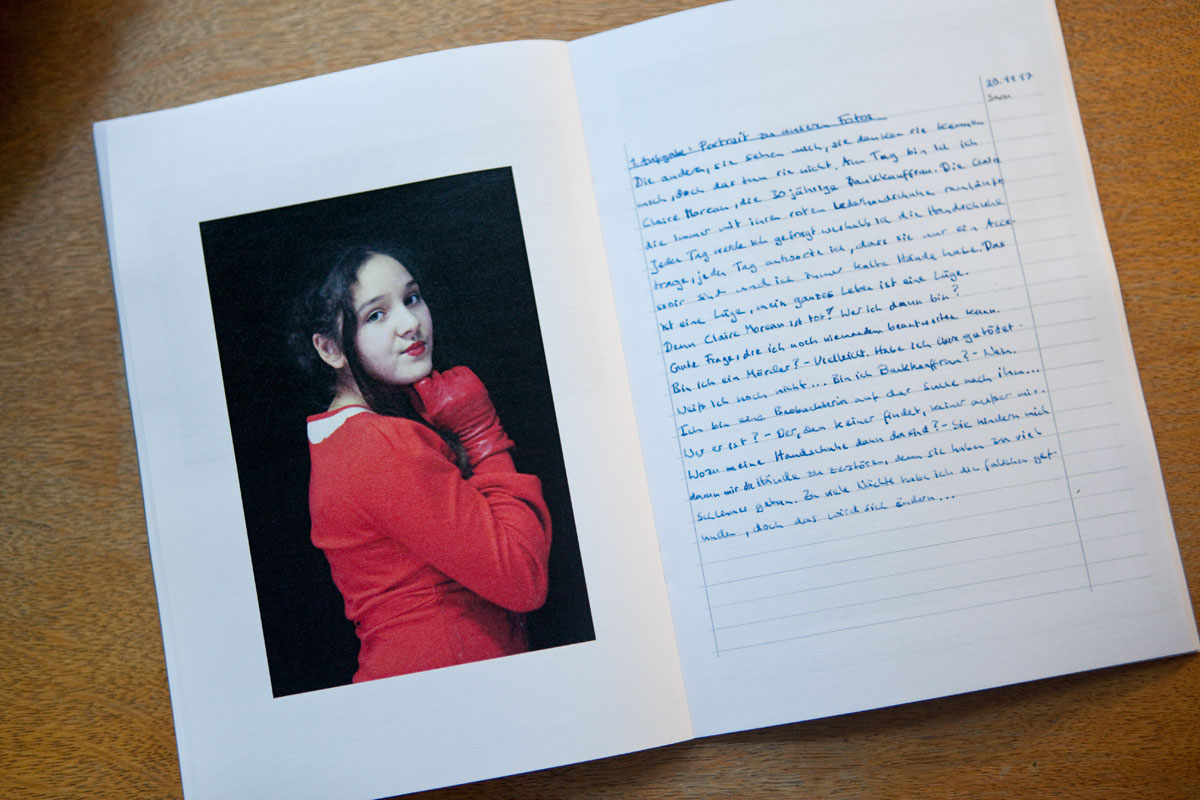 20.11.17
1. Aufgabe: Portrait zu unseren Fotos
Die anderen, sie sehen mich, sie denken sie kennen
mich, doch das tun sie nicht. Am Tag bin ich
Claire Moreau, die 30 jährige Bankkauffrau. Die Claire
die immer mit ihren roten Lederhandschuhe rumläuft
Jeden Tag werde ich gefragt weshalb ich die Handschuhe
trage, jeden Tag antworte ich, dass sie nur ein Acce-
ssoir sind und ich immer kalte Hände habe. Das
ist eine Lüge, mein ganzes Leben ist eine Lüge.
Denn Claire Moreau ist tot! Wer ich dann bin?
Gute Frage, die ich noch niemandem beantworten kann.
Bin ich ein Mörder? - Vielleicht. Habe ich Claire getötet -
Weiß ich noch nicht... Bin ich Bankkauffrau? - Nein.
Ich bin eine Beobachterin auf der Suche nach ihm...
Wer er ist? - Der, den keiner findet, keiner außer mir.
Wozu meine Handschuhe dann da sind? - Sie hindern mich
daran mir die Hände zu zerstören, denn sie haben zu viel
Schlimmes getan. Zu viele Nächte habe ich den falschen gef-
unden, doch das wird sich ändern...